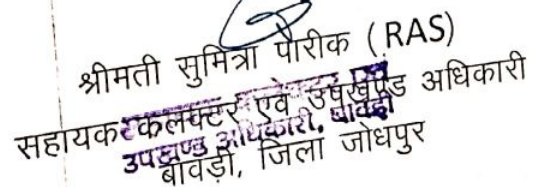 श्रीमती सुमित्रा पारीक (RAS)
सहायक कलक्टर एवं उपखण्ड अधिकारी
उपखण्ड अधिकारी, बावड़ी
बावड़ी, जिला जोधपुर